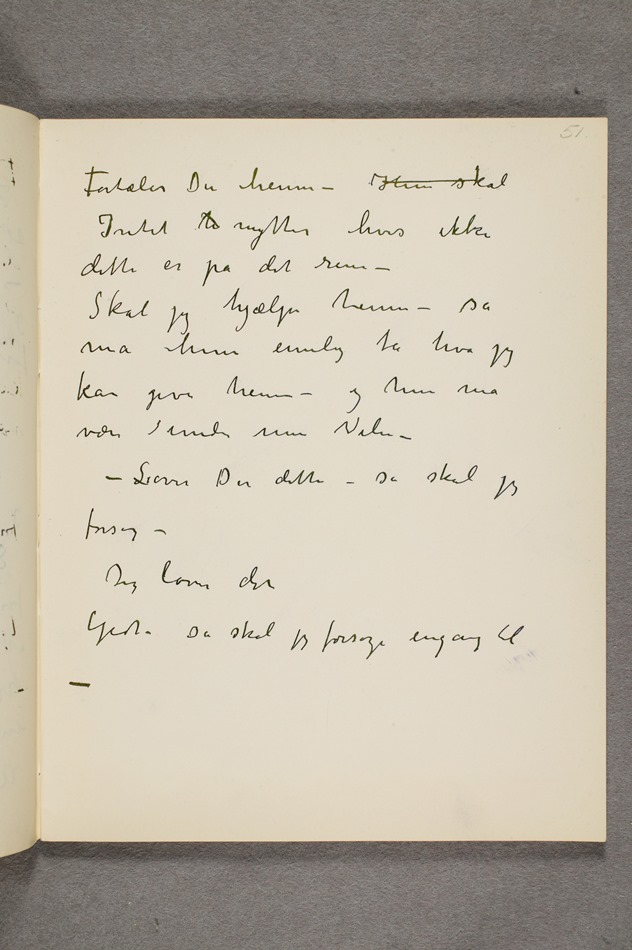 51.
Fortæler Du henne – Hun skal
Intet nytter hvis ikke
dette er på det rene –
Skal jeg hjælpe henne – så
må hun ennlig ta hva jeg
kan give henne – og hun må
være min
– Lover Du dette – så skal jeg
forsøg –
Jeg lover det
Godt – så skal jeg forsøge engang til
–